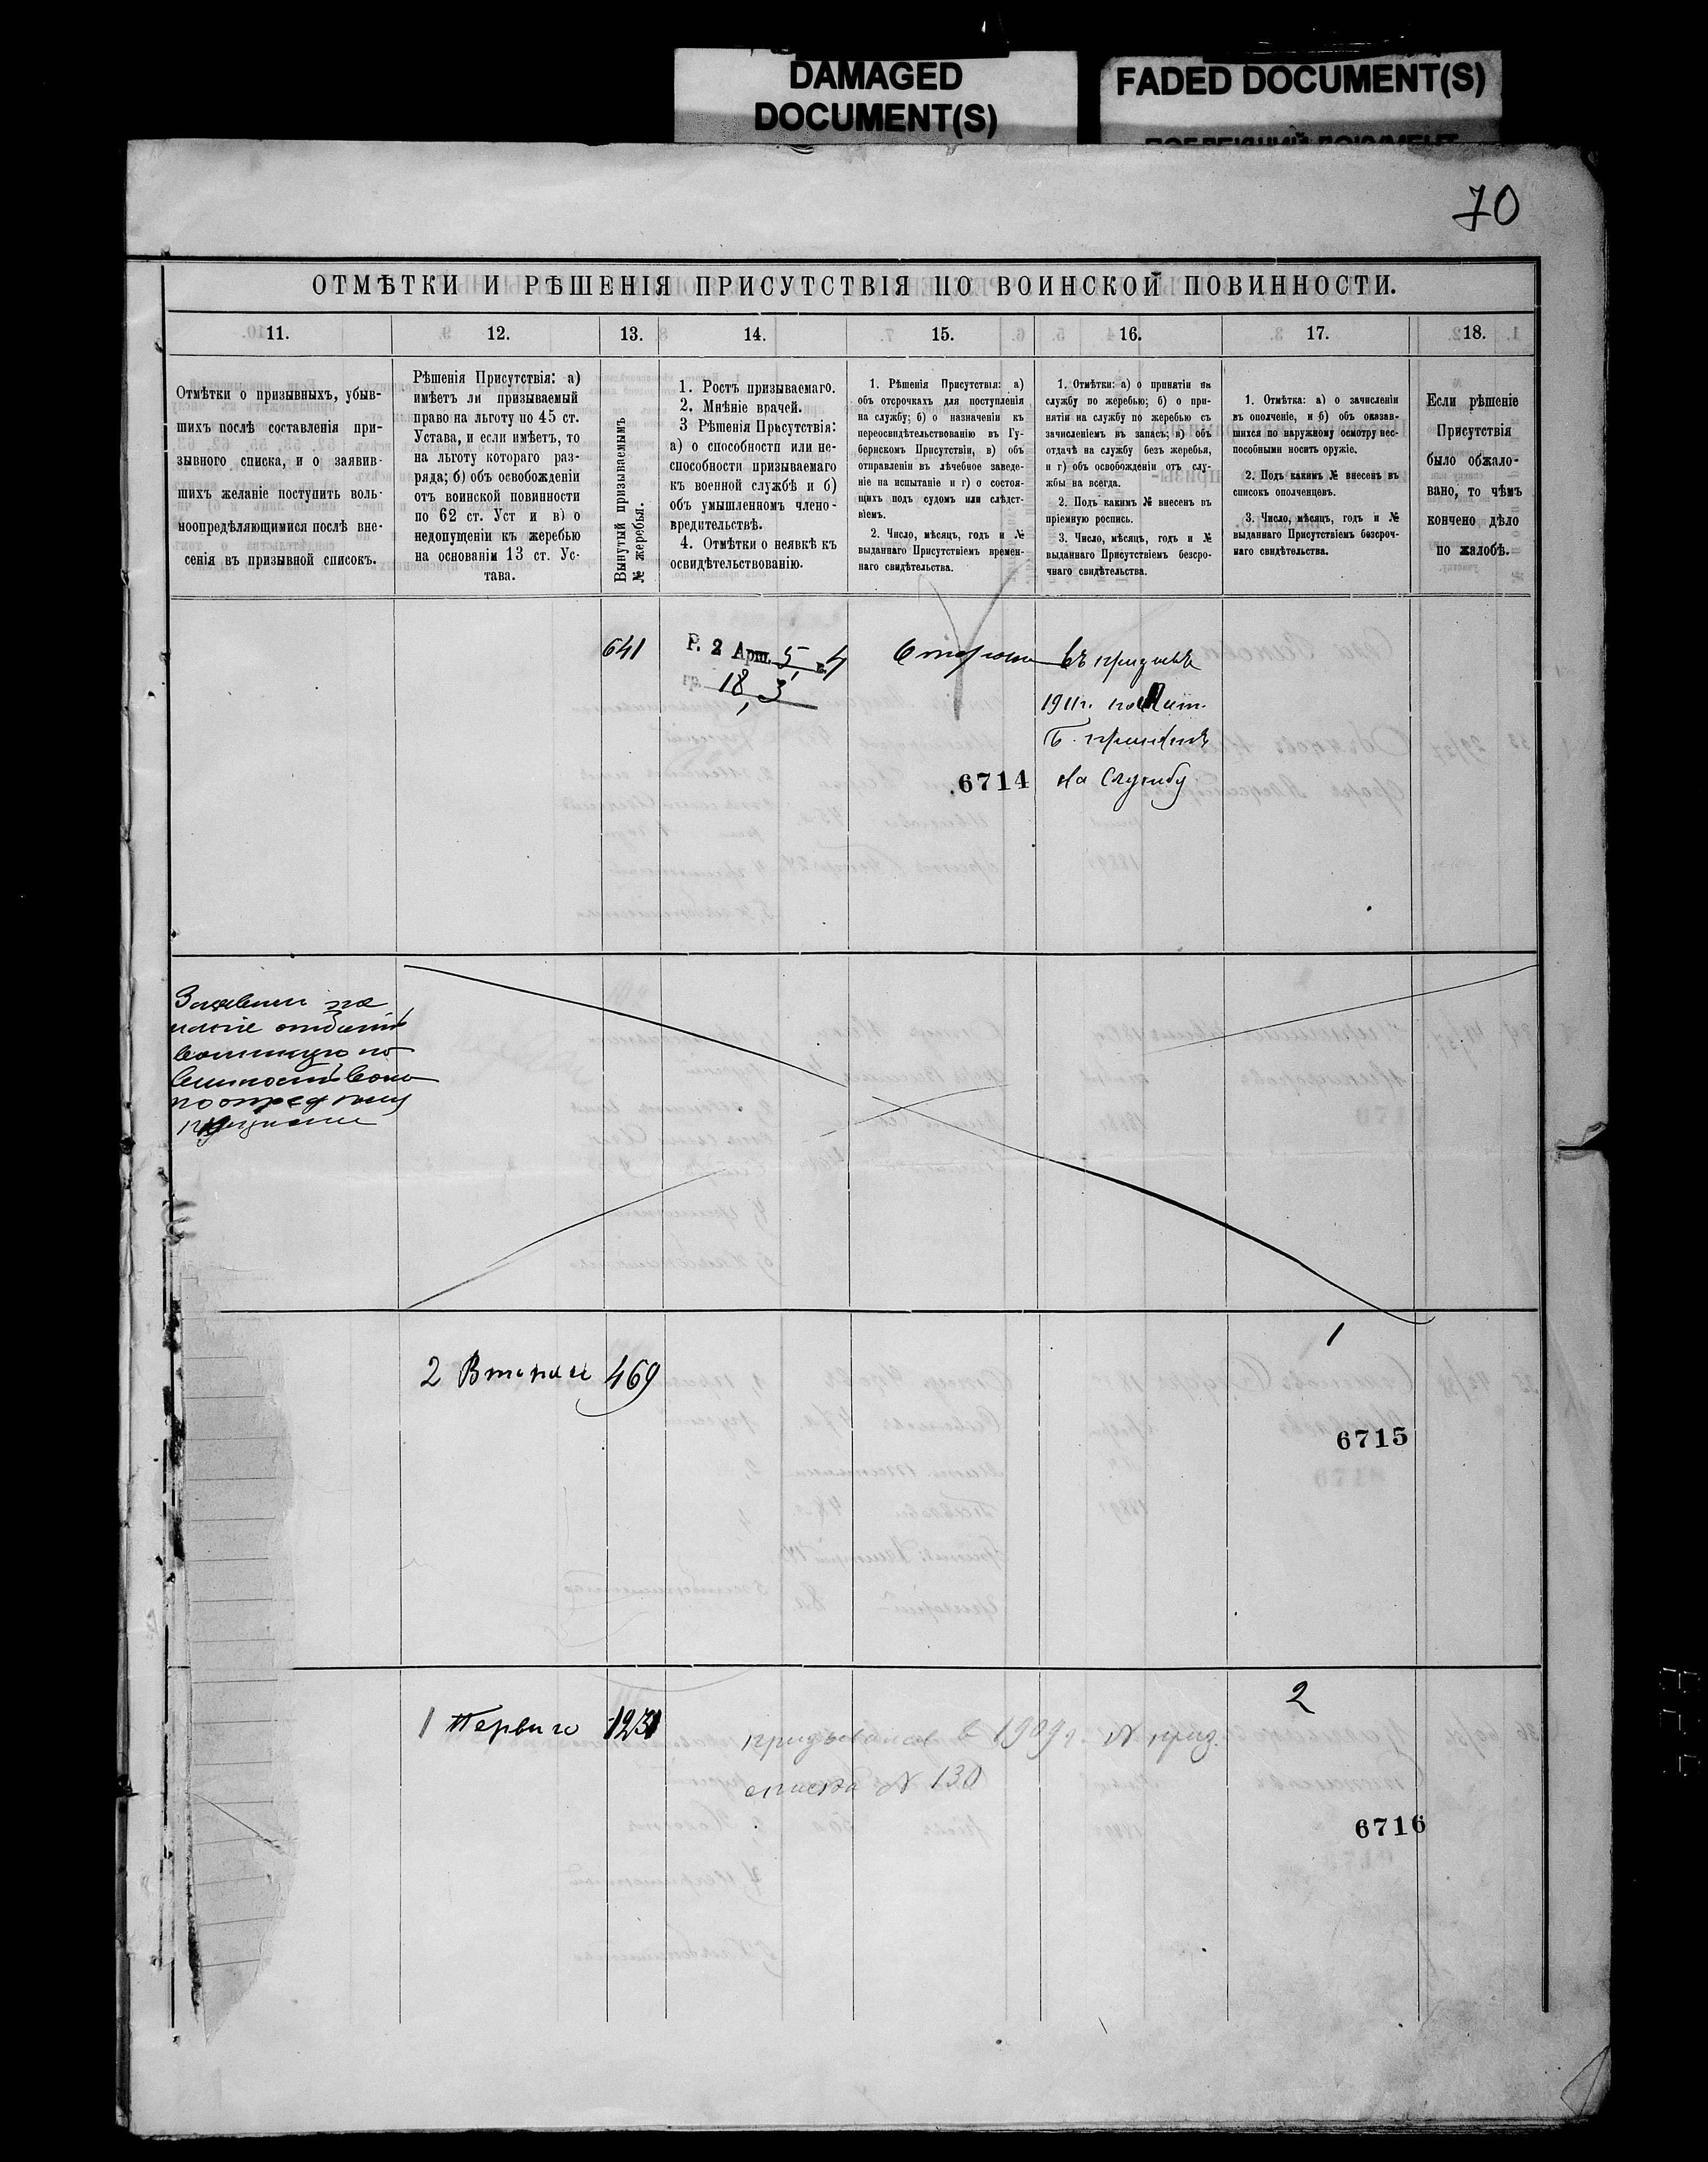 DAMAGED
DOCUMENT(S)
FADED DOCUMENT(S)
70
ОТМѢТКИ И РѢШЕНІЯ ПРИСУТСТВІЯ ПО ВОИНСКОЙ ПОВИННОСТИ.
11.
12.
13.
14.
15.
16.
17.
18.
Отмѣтки о призывныхъ, убыв-
шихъ послѣ составленія при-
зывного списка, и о заявив-
шихъ желаніе поступить воль-
ноопредѣляющимися послѣ вне-
сенія въ призывной списокъ.
Рѣшенія Присутствія: а)
имѣетъ ли призываемый
право на льготу по 45 ст.
Устава, и если имѣетъ, то
на льготу котораго раз-
ряда; б) объ освобожденіи
отъ воинской повинности
по 62 ст. Уст и в) о
недопущеніи къ жеребью
на основаніи 13 ст. Ус-
тава.
Вынутый призываемымъ
№ жеребья.
1. Ростъ призываемаго.
2. Мнѣніе врачей.
3 Рѣшенія Присутствія:
а) о способности или не-
способности призываемаго
къ военной службѣ и б)
объ умышленномъ члено-
вредительствѣ.
4. Отмѣтки о неявкѣ къ
освидѣтельствованію.
1. Рѣшенія Присутствія: а)
объ отсрочкахъ для поступленія
на службу; б) о назначеніи къ
переосвидѣтельствованію въ Гу-
бернскомъ Присутствіи, в) объ
отправленіи въ лѣчебное заведе-
ніе на испытаніе и г) о состоя-
щихъ подъ судомъ или слѣдст-
віемъ.
2. Число, мѣсяцъ, годъ и №
выданнаго Присутствіемъ времен-
наго свидѣтельства.
1. Отмѣтки: а) о принятіи на
службу по жеребью; б) о при-
нятіи на службу по жеребью съ
зачисленіемъ въ запасъ; в) объ
отдачѣ на службу безъ жеребья,
и г) объ освобожденіи отъ слу-
жбы на всегда.
2. Подъ какимъ № внесенъ въ
пріемную роспись.
3. Число, мѣсяцъ, годъ и №
выданнаго Присутствіемъ безсро-
чнаго свидѣтельства.
1. Отмѣтка: а) о зачисленіи
въ ополченіе, и б) объ оказав-
шихся по наружному осмотру нес-
пособными носить оружіе.
2. Подъ какимъ № внесенъ въ
списокъ ополченцевъ.
3. Число, мѣсяцъ, годъ и №
выданнаго Присутствіемъ безсроч-
наго свидѣтельства.
Если рѣшеніе
Присутствія
было обжало-
вано, то чѣмъ
кончено дѣло
по жалобѣ.
641
Р. 2 Арш. 5, в. 4
гр. 18, 3
въ призывѣ
1911г. по Лит.
Б. принятъ
на службу
6714
воинскую по
2 Втораго
469
1
6715
1 Перваго
1231
2
призывался в 1909г. № приз.
списка № 130
6716